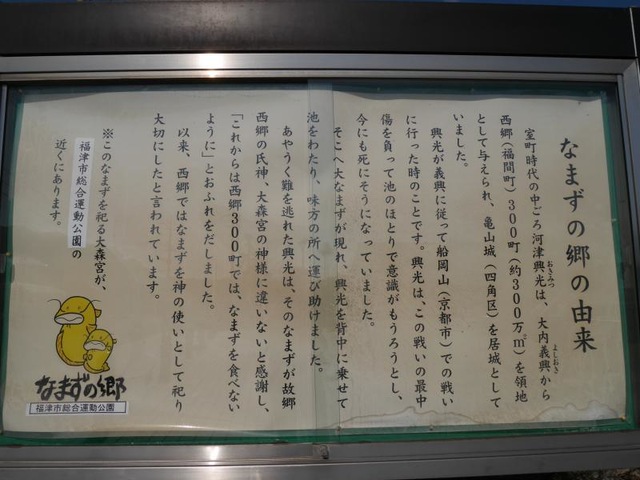 なまずの郷の由来
室町時代の中ごろ河津興光は、大内義興から
おきみつ
よしおき
西郷（福間町）３００町（約３００万㎡）を領地
として与えられ、亀山城（四角区）を居城として
いました。
興光が義興に従って船岡山（京都市）での戦い
に行った時のことです。興光は、この戦いの最中
傷を負って池のほとりで意識がもうろうとし、
今にも死にそうになっていました。
そこへ大なまずが現れ、興光を背中に乗せて
池をわたり、味方の所へ運び助けました。
あやうく難を逃れた興光は、そのなまずが故郷
西郷の氏神、大森宮の神様に違いないと感謝し、
「これからは西郷３００町では、なまずを食べない
ように」とおふれをだしました。
以来、西郷ではなまずを神の使いとして祀り
大切にしたと言われています。
※このなまずを祀る大森宮が、
福津市総合運動公園の
近くにあります。
なまずの郷
福津市総合運動公園